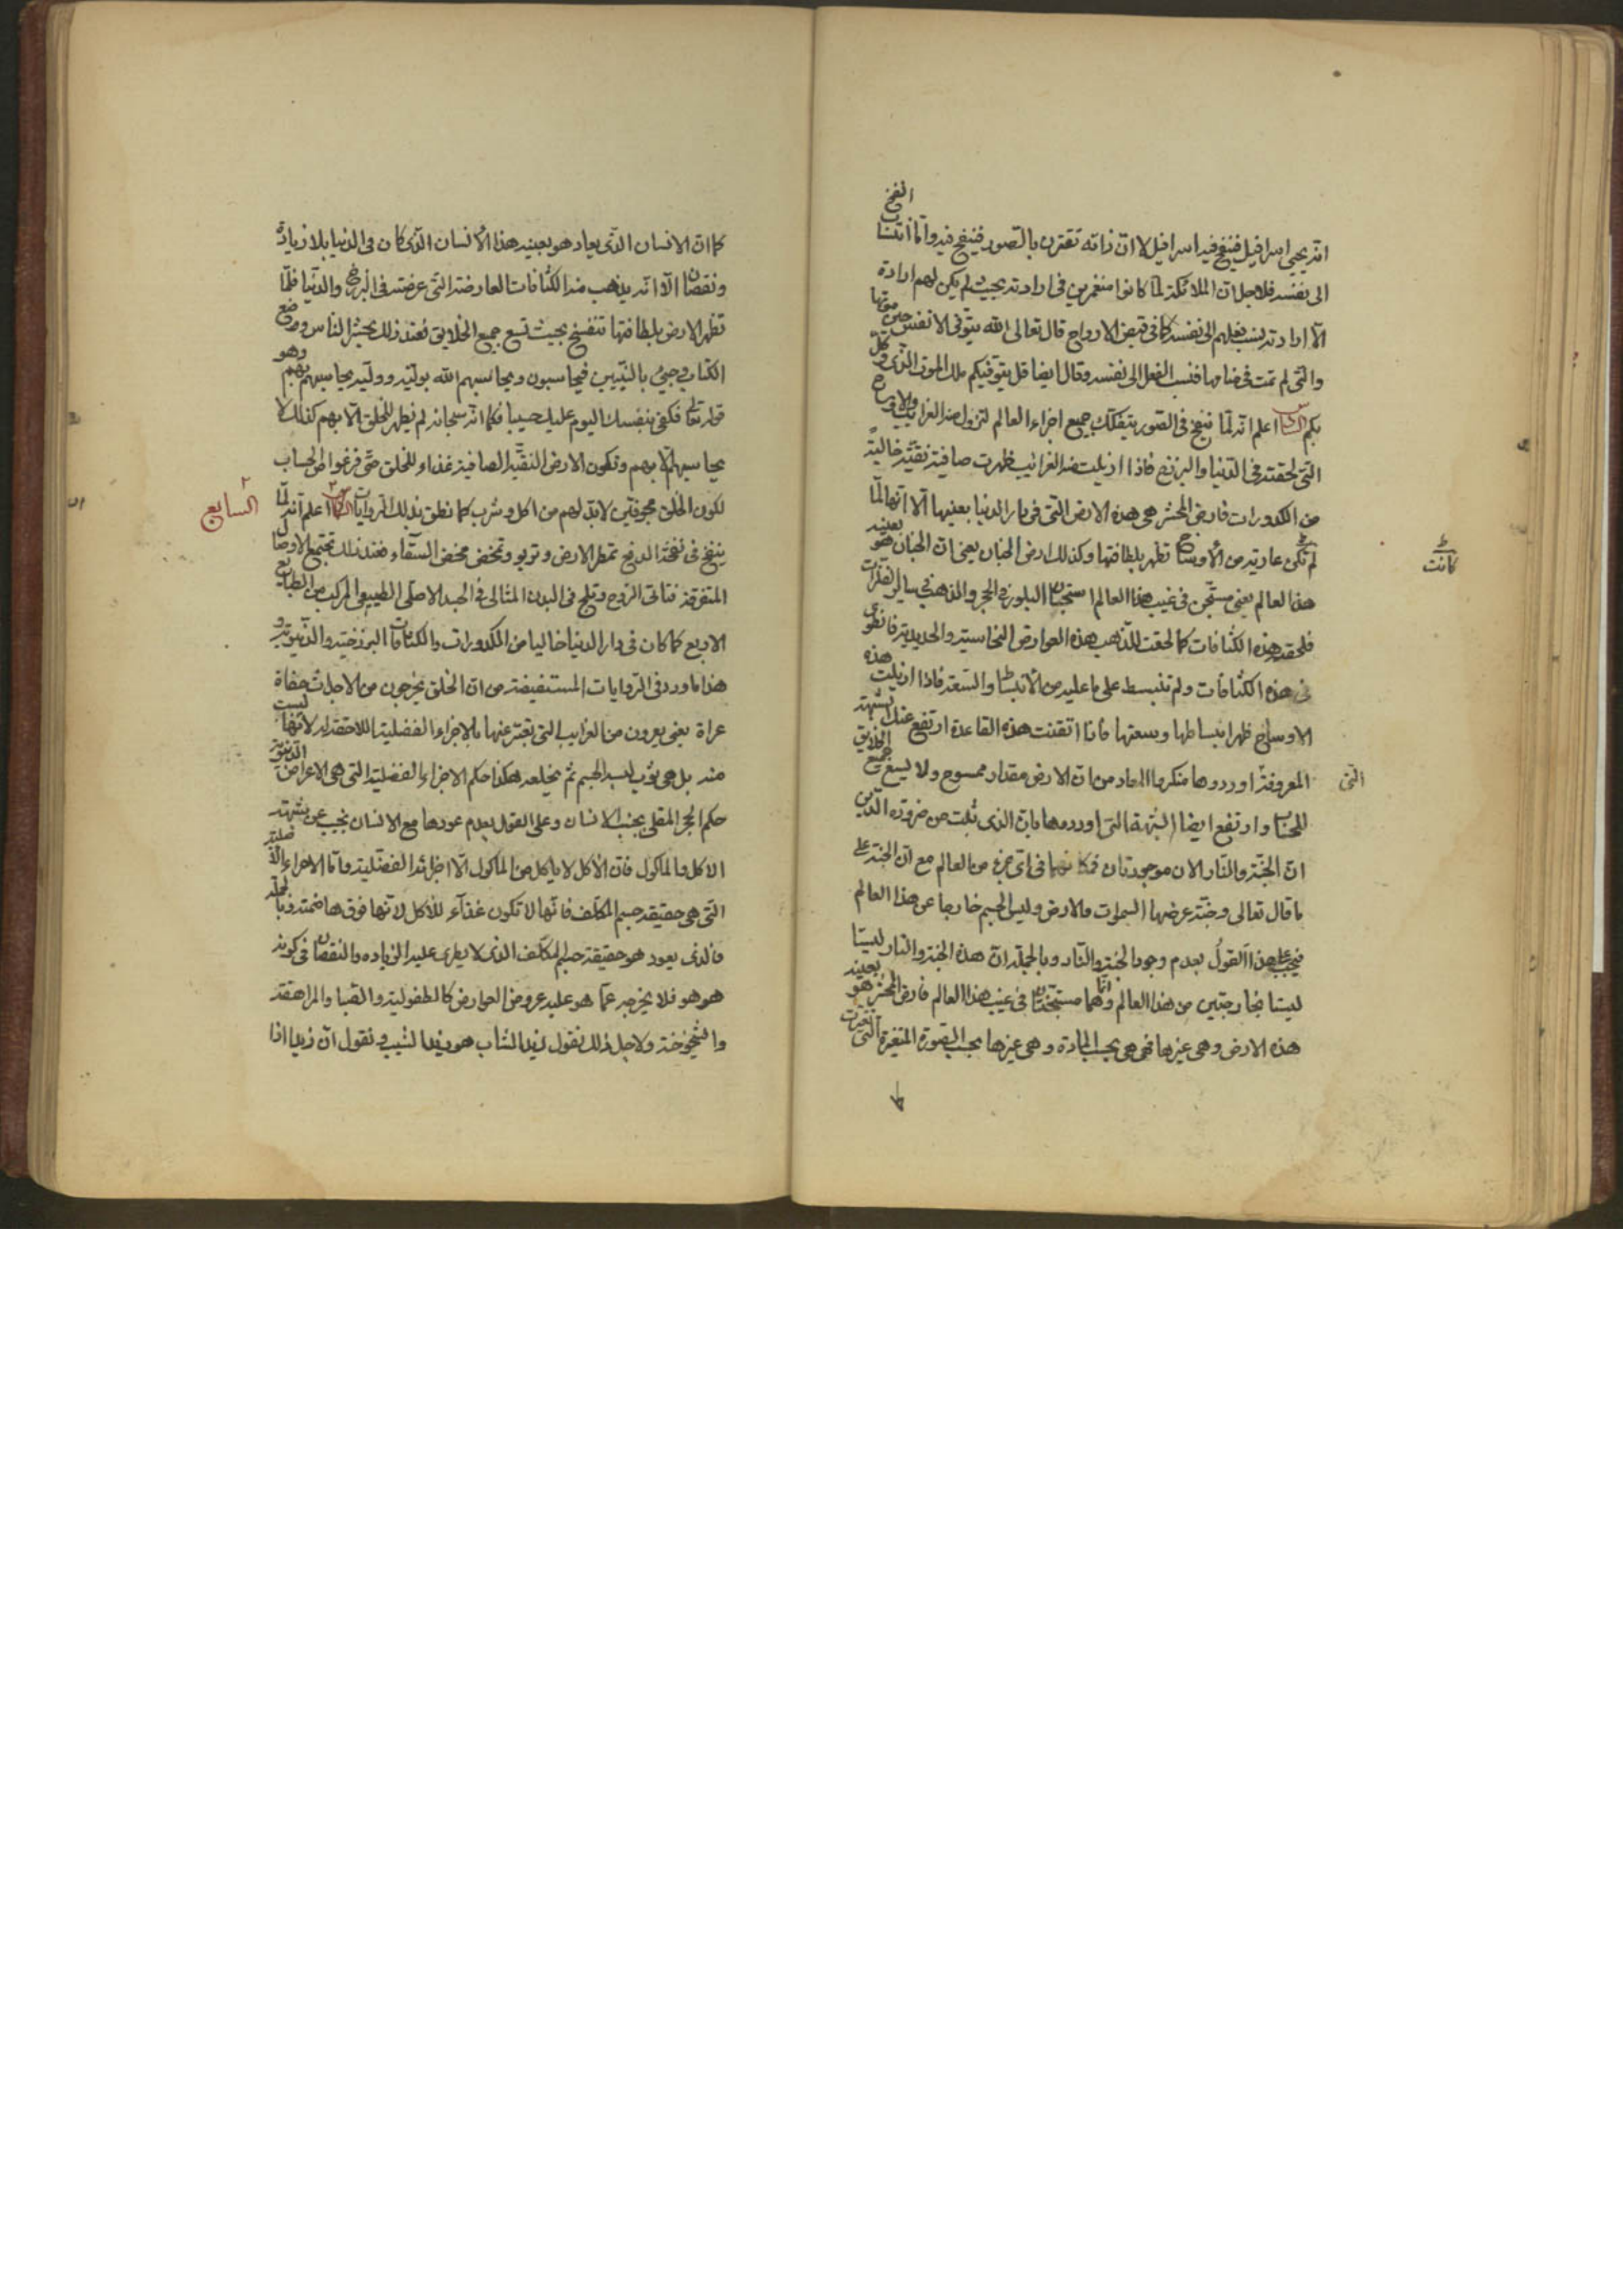 انه يحيى اسرافيل فينفخ فيه اسرافيل لا ان ذاته تقترن بالصور فينفخ فيه واما انتساب النفخ
الى نفسه فلاجل ان الملائكة لما كانوا منغمرين في ارادته بحيث لم يكن لهم ارادة
الا ارادته نسب فعلهم الى نفسه كما في قبض الارواح قال تعالى الله يتوفى الانفس حين موتها
والتي لم تمت في منامها فنسب الفعل الى نفسه وقال ايضا قل يتوفيكم ملك الموت الذي وكل
بكم السادس اعلم انه لما نفخ في الصور يتفكك جميع اجزاء العالم لتزول منه الغرايب والاوساخ
التي لحقته في الدنيا والبرزخ فاذا ازيلت منه الغرايب ظهرت صافية نقية خالية
من الكدورات فارض المحشر هي هذه الارض التي في دار الدنيا بعينها الا انها لما
لم تكن عارية من الأوساخ تظهر بلطافتها وكذلك ارض الجنان يعني ان الجنان هو بعينه
كانت
هذا العالم يعني مستجن في غيب هذا العالم استجنان البلور في الحجر والذهب في ساير الفلزات
فلحقته هذه الكثافات كما لحقت للذهب هذه العوارض النحاسية والحديدية فانطوى
في هذه الكثافات ولم تنبسط على ما عليه من الأنبساط والسعة فاذا ازيلت هذه
الاوساخ ظهر انبساطها وسعتها فاذا اتقنت هذه القاعدة ارتفع عنك الشبهة
المعروفة اوردوها منكروا المعاد من ان الارض مقدار ممسوح ولا يسع جميع الخلايق
التي
للحساب وارتفع ايضا الشبهة التي اوردوها بان الذى ثبت من ضرورة الدين
ان الجنة والنار الان موجودتان فمكانهما في اي جزء من العالم مع ان الجنة على
ما قال تعالى وجنة عرضها السموات والارض وليس الجسم خارجا عن هذا العالم
فيجب على هذا القول بعدم وجود الجنة والنار وبالجملة ان هذه الجنة والنار ليستا
ليستا بخارجتين من هذا العالم وانما هما مستجنتان في غيب هذا العالم فارض المحشر هو بعينه
هذه الارض وهي غيرها فهي هي بحسب المادة وهي غيرها بحسب الصورة المتغيرة التي تغيرت
كما ان الانسان الذى يعاد هو بعينه هذا الأنسان الذى كان في الدنيا بلا زيادة
ونقصان الا انه يذهب منه الكثافات العارضة التي عرضته في البرزخ والدنيا فلما
تظهر الارض بلطافتها تنفسخ بحيث تسع جميع الخلايق فعند ذلك يحشر الناس ووضع
الكتاب وجيئ بالنبيين فيحاسبون ويحاسبهم الله بوليه ووليه يحاسبهم بهم وهو
قوله تعالى فكفى بنفسك اليوم عليك حسيبا فكما انه سبحانه لم يظهر للخلق الا بهم كذلك لا
يحاسبهم الا بهم وتكون الارض النقية الصافية غذاء للخلق حتى فرغوا من الحساب
لكون الخلق مجوفين لا بد لهم من اكل وشرب كما نطق بذلك الروايات السابع اعلم انه لما
السابع
ينفخ في نفخة الدفع تمطر الارض وتربو وتمخض مخض السقاء فعند ذلك تجتمع الاوصال
المتفرقة فتاتى الروح وتلج في البدن المثالى في الجسد الاصلى الطبيعى المركب من الطبايع
الاربع كما كان في دار الدنيا خاليا من الكدورات والكثافات البرزخية والدنيوية و
هذا ما ورد في الروايات المستفيضة من ان الخلق يخرجون من الاجداث حفاة
عراة يعني يعرون من الغرايب التي يعبر عنها بالاجزاء الفضلية اللاحقة له لانها ليست
منه بل هي ثوب لبسه الجسم ثم يخلعه هكذا حكم الاجزاء الفضلية التي هي الاعراض الدنيوية
حكم الحجر الملقى بجنب الانسان وعلى القول بعدم عودها مع الانسان نجيب عن شبهة
الاكل والماكول فان الأكل لا ياكل من الماكول الا اجزائه الفضلية واما الاجزاء الاصلية
التي هي حقيقة جسم المكلف فانها لا تكون غذآء للأكل لانها فوق هاضمته وبالجملة
فالذى يعود هو حقيقة جسم المكلف الذى لا يطرى عليه الزياده والنقصان في كونه
هو هو فلا يخرجه عما هو عليه عروض العوارض كالطفولية والصبا والمراهقة
والشيخوخة ولاجل ذلك نقول زيد الشاب هو زيد الشيب ونقول ان زيدا اذا